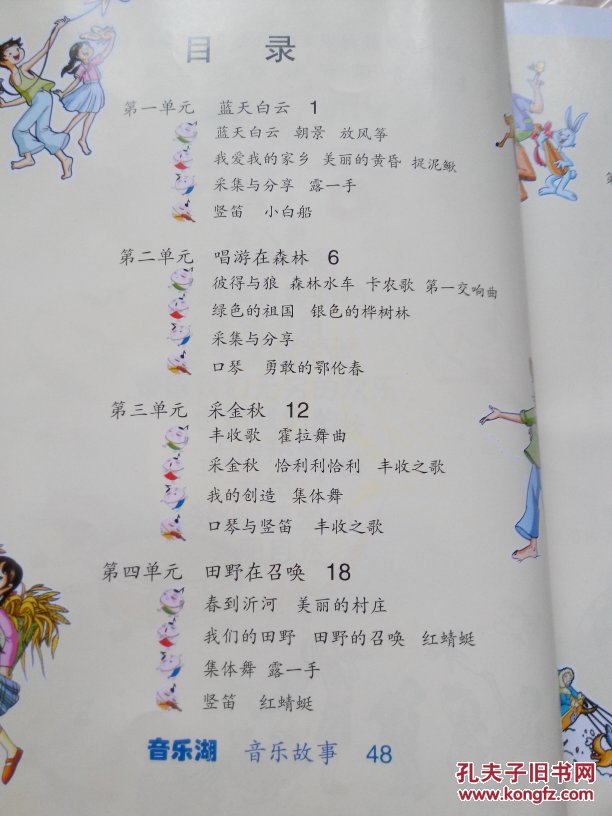 目 录
第一单元 蓝天白云 1
蓝天白云 朝景 放风筝
我爱我的家乡 美丽的黄昏 捉泥鳅
采集与分享 露一手
竖笛 小白船
第二单元 唱游在森林 6
彼得与狼 森林水车 卡农歌 第一交响曲
绿色的祖国 银色的桦树林
采集与分享
口琴 勇敢的鄂伦春
第三单元 采金秋 12
丰收歌 霍拉舞曲
采金秋 恰利利恰利 丰收之歌
我的创造 集体舞
口琴与竖笛 丰收之歌
第四单元 田野在召唤 18
春到沂河 美丽的村庄
我们的田野 田野的召唤 红蜻蜓
集体舞 露一手
竖笛 红蜻蜓
音乐湖 音乐故事 48
孔夫子旧书网
www.kongfz.com